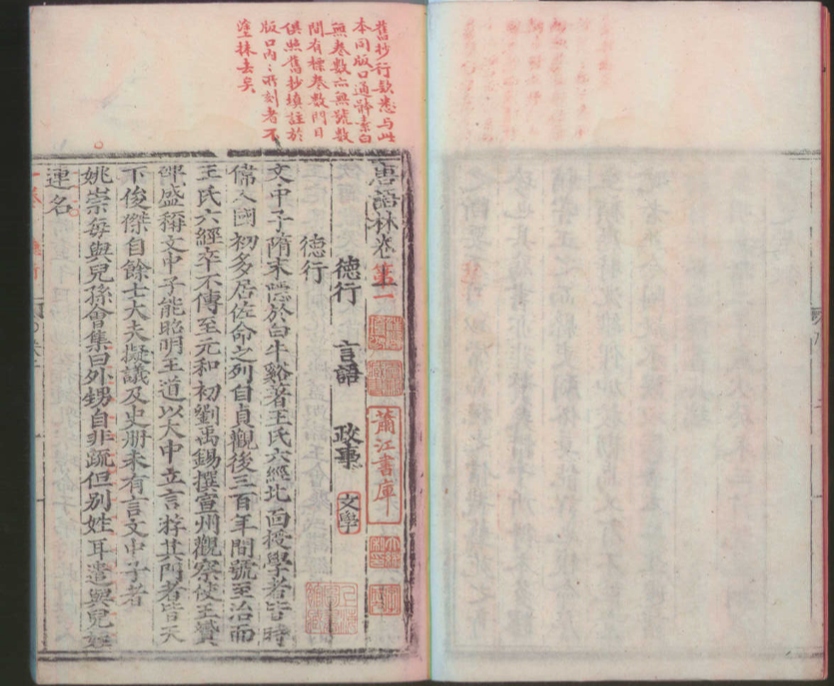 舊抄行欵悉与此
本同版口通體素白
無卷數亦無號數
間有標卷數門目
俱照舊抄填註於
版口內所刻者不
塗抹去矣
唐語林卷第一
蕭江書庫
德行 言語 政事 文學
德行
文中子隋末隱於白牛谿著王氏六經北面授學者皆時
偉人國初多居佐命之列自貞觀後三百年間號至治而
王氏六經卒不傳至元和初劉禹錫撰宣州觀察使王贊
碑盛稱文中子能昭明王道以大中立言游其門者皆天
下俊傑自餘士大夫擬議及史册未有言文中子者
姚崇每與兒孫會集曰外甥自非疏但别姓耳遣與兒姪
連名